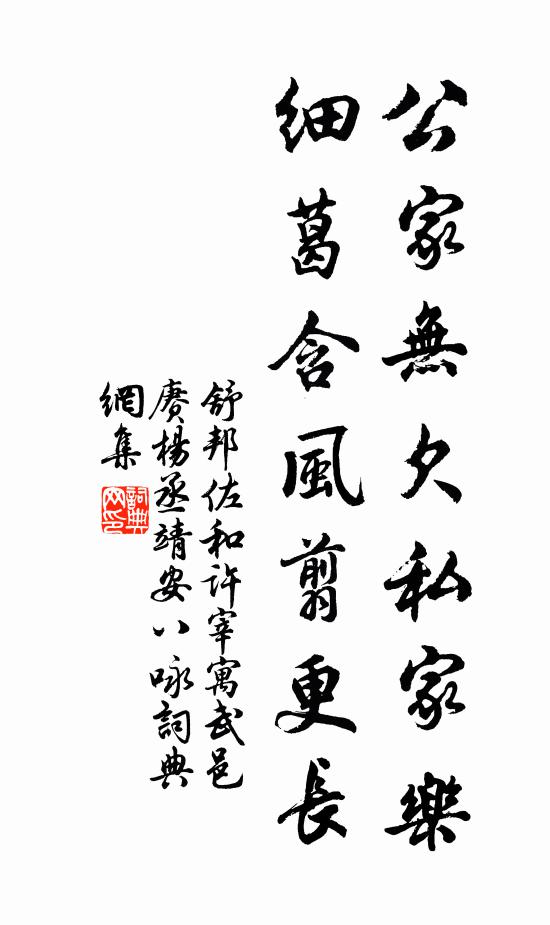 公家無欠私家樂
細葛含風翦更長
舒邦佐和許宰寓武邑
賡楊丞靖安八咏詞典
網集
詞典
网印